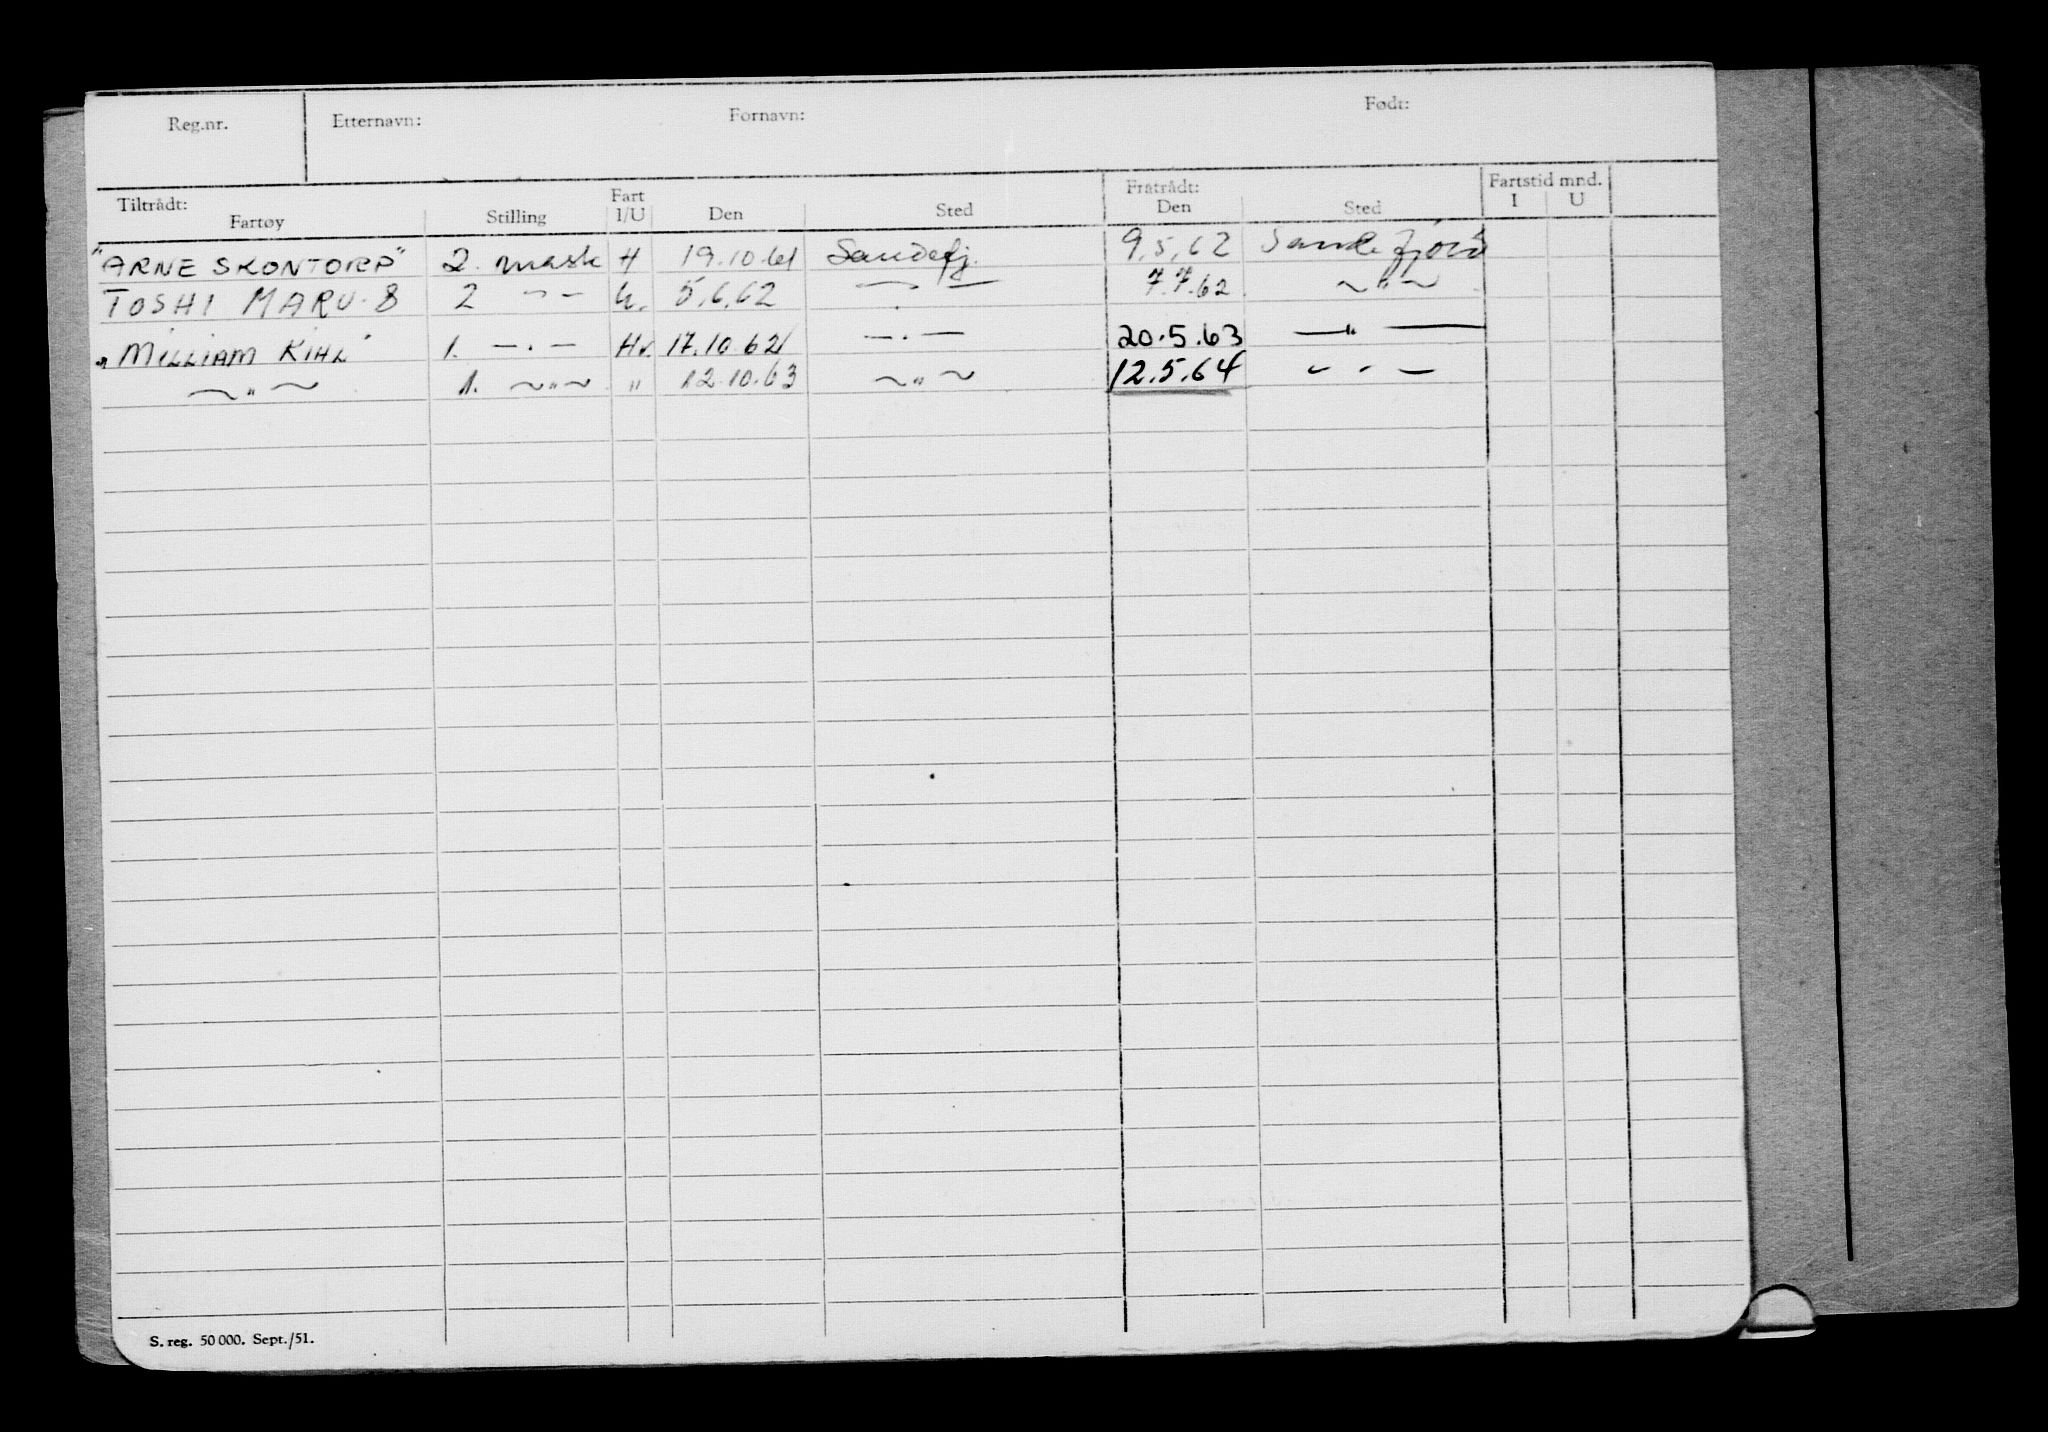 Reg.nr. Etternavn: Fornavn: Født:
Tiltrådt: Fratrådt: Fartstid mnd.
Fartøy Stilling Fart I/U Den Sted Den Sted I U
"ARNE SKONTORP" 2. mask H 19.10.61 Sandefj. 9.5.62 Sandefjord
TOSHI MARU-8 2 -"- U. 5.6.62 -"- 7.7.62 -"-
"WILLIAM KIHL" 1. -"- Hv. 17.10.62 -"- 20.5.63 -"-
-"- 1. -"- " 12.10.63 -"- 12.5.64 -"-
S. reg. 50 000. Sept./51.